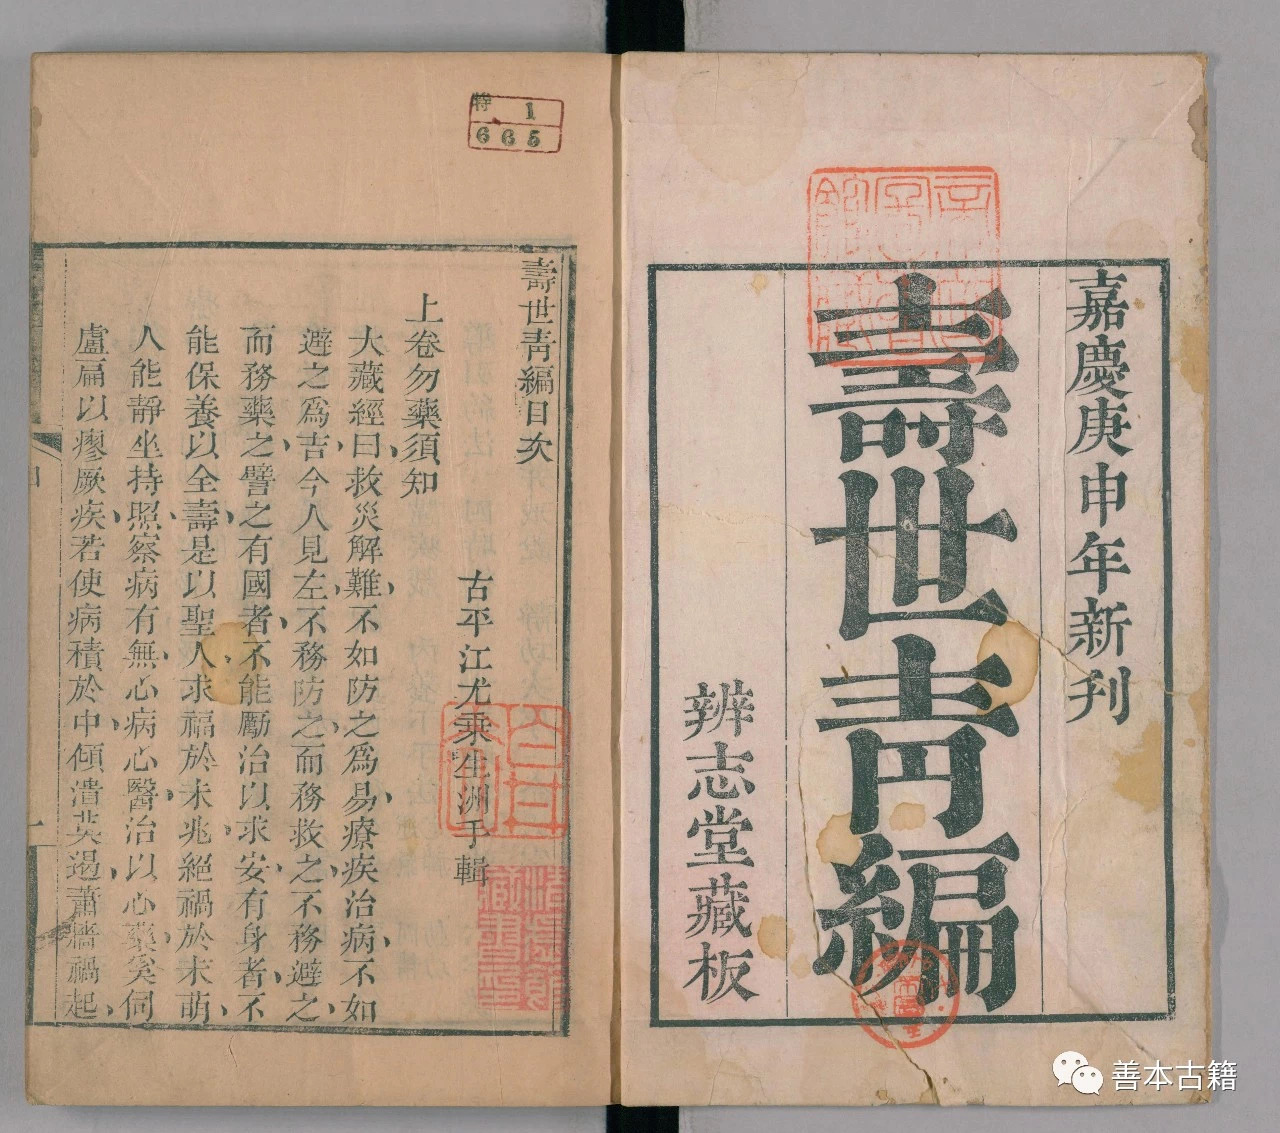 嘉慶庚申年新刋
壽世青編
辨志堂藏板
特 1
665
壽世青編目次
古平江尤乘生洲手輯
上卷勿藥須知
大藏經曰救災解難不如防之爲易療疾治病不如
避之爲吉今人見左不務防之而務救之不務避之
而務藥之譬之有國者不能勵治以求安有身者不
能保養以全壽是以聖人求福於未兆絕禍於未萌
人能靜坐持照察病有無心病心醫治以心藥奚伺
盧扁以瘳厥疾若使病積於中傾潰莫遏蕭牆禍起
善本古籍